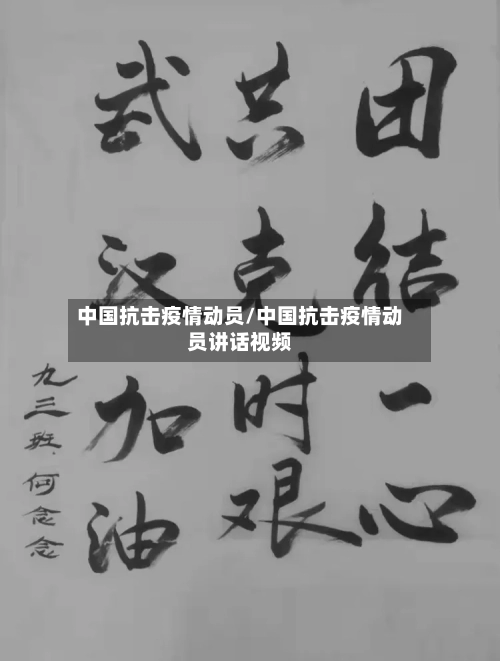 团结一心
共克时艰
武汉加油
九三班、何念念
中国抗击疫情动员/中国抗击疫情动
员讲话视频